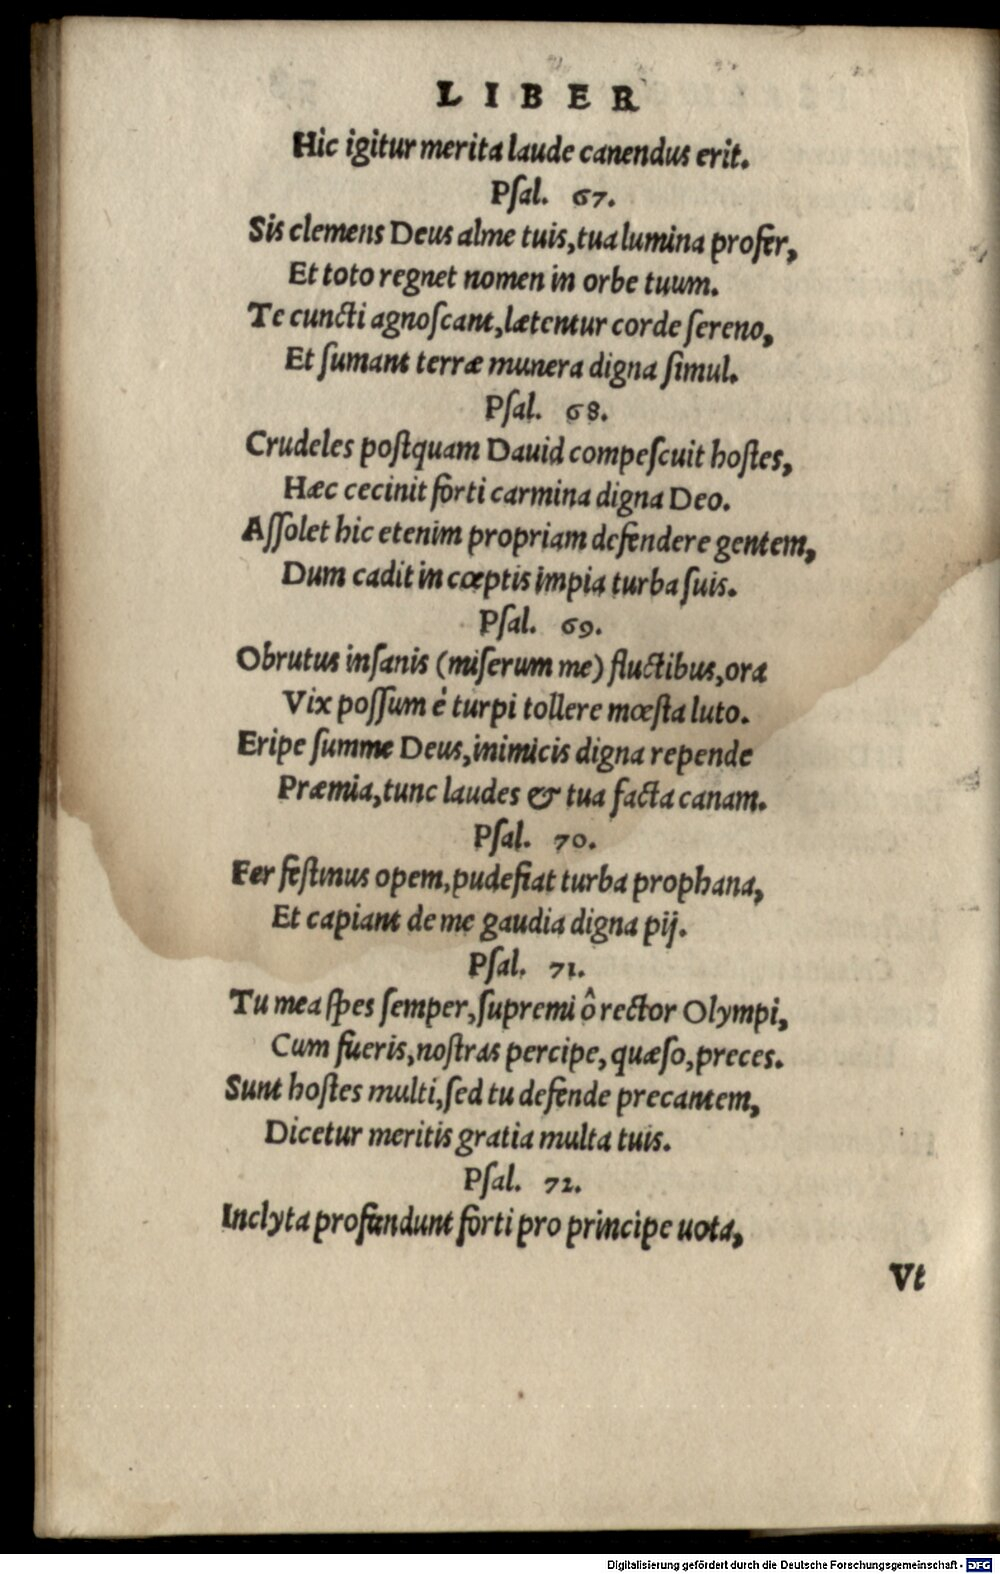 LIBER
Hic igitur merita laude canendus erit.
Pſal. 67.
Sis clemens Deus alme tuis, tua lumina profer,
Et toto regnet nomen in orbe tuum.
Te cuncti agnoſcant, lætentur corde ſereno,
Et ſumant terræ munera digna ſimul.
Pſal. 68.
Crudeles poſtquam Dauid compeſcuit hoſtes,
Hæc cecinit forti carmina digna Deo.
Aſſolet hic etenim propriam defendere gentem,
Dum cadit in cœptis impia turba ſuis.
Pſal. 69.
Obrutus inſanis (miſerum me) fluctibus, ora
Vix poſſum è turpi tollere mœſta luto.
Eripe ſumme Deus, inimicis digna repende
Præmia, tunc laudes & tua facta canam.
Pſal. 70.
Fer feſtinus opem, pudefiat turba prophana,
Et capiant de me gaudia digna pij.
Pſal. 71.
Tu mea ſpes ſemper, ſupremi ô rector Olympi,
Cum fueris, noſtras percipe, quæſo, preces.
Sunt hoſtes multi, ſed tu defende precantem,
Dicetur meritis gratia multa tuis.
Pſal. 72.
Inclyta profundunt forti pro principe uota,
Vt
Digitalisierung gefördert durch die Deutsche Forschungsgemeinschaft - DFG